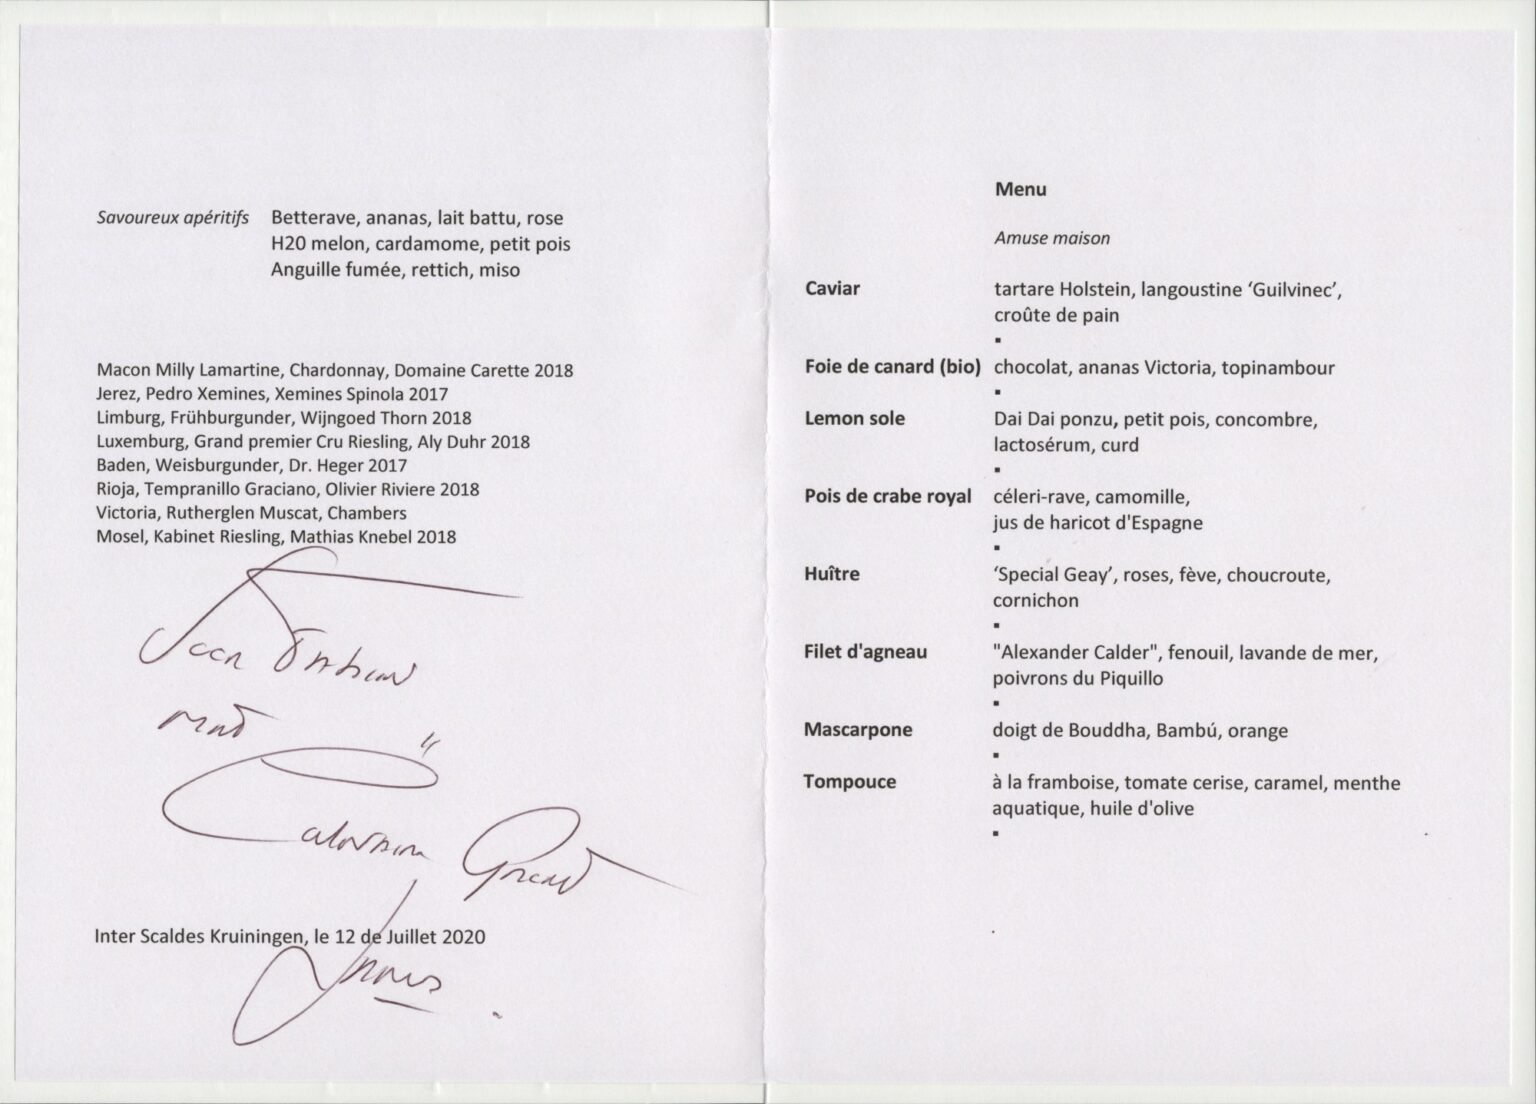 Savoureux apéritifs Betterave, ananas, lait battu, rose
H20 melon, cardamome, petit pois
Anguille fumée, rettich, miso
Macon Milly Lamartine, Chardonnay, Domaine Carette 2018
Jerez, Pedro Xemines, Xemines Spinola 2017
Limburg, Frühburgunder, Wijngoed Thorn 2018
Luxemburg, Grand premier Cru Riesling, Aly Duhr 2018
Baden, Weisburgunder, Dr. Heger 2017
Rioja, Tempranillo Graciano, Olivier Riviere 2018
Victoria, Rutherglen Muscat, Chambers
Mosel, Kabinet Riesling, Mathias Knebel 2018
Inter Scaldes Kruiningen, le 12 de Juillet 2020
Menu
Amuse maison
Caviar tartare Holstein, langoustine ‘Guilvinec’,
croûte de pain
▪
Foie de canard (bio) chocolat, ananas Victoria, topinambour
▪
Lemon sole Dai Dai ponzu, petit pois, concombre,
lactosérum, curd
▪
Pois de crabe royal céleri-rave, camomille,
jus de haricot d'Espagne
▪
Huître ‘Special Geay’, roses, fève, choucroute,
cornichon
▪
Filet d'agneau "Alexander Calder", fenouil, lavande de mer,
poivrons du Piquillo
▪
Mascarpone doigt de Bouddha, Bambú, orange
▪
Tompouce à la framboise, tomate cerise, caramel, menthe
aquatique, huile d'olive
▪